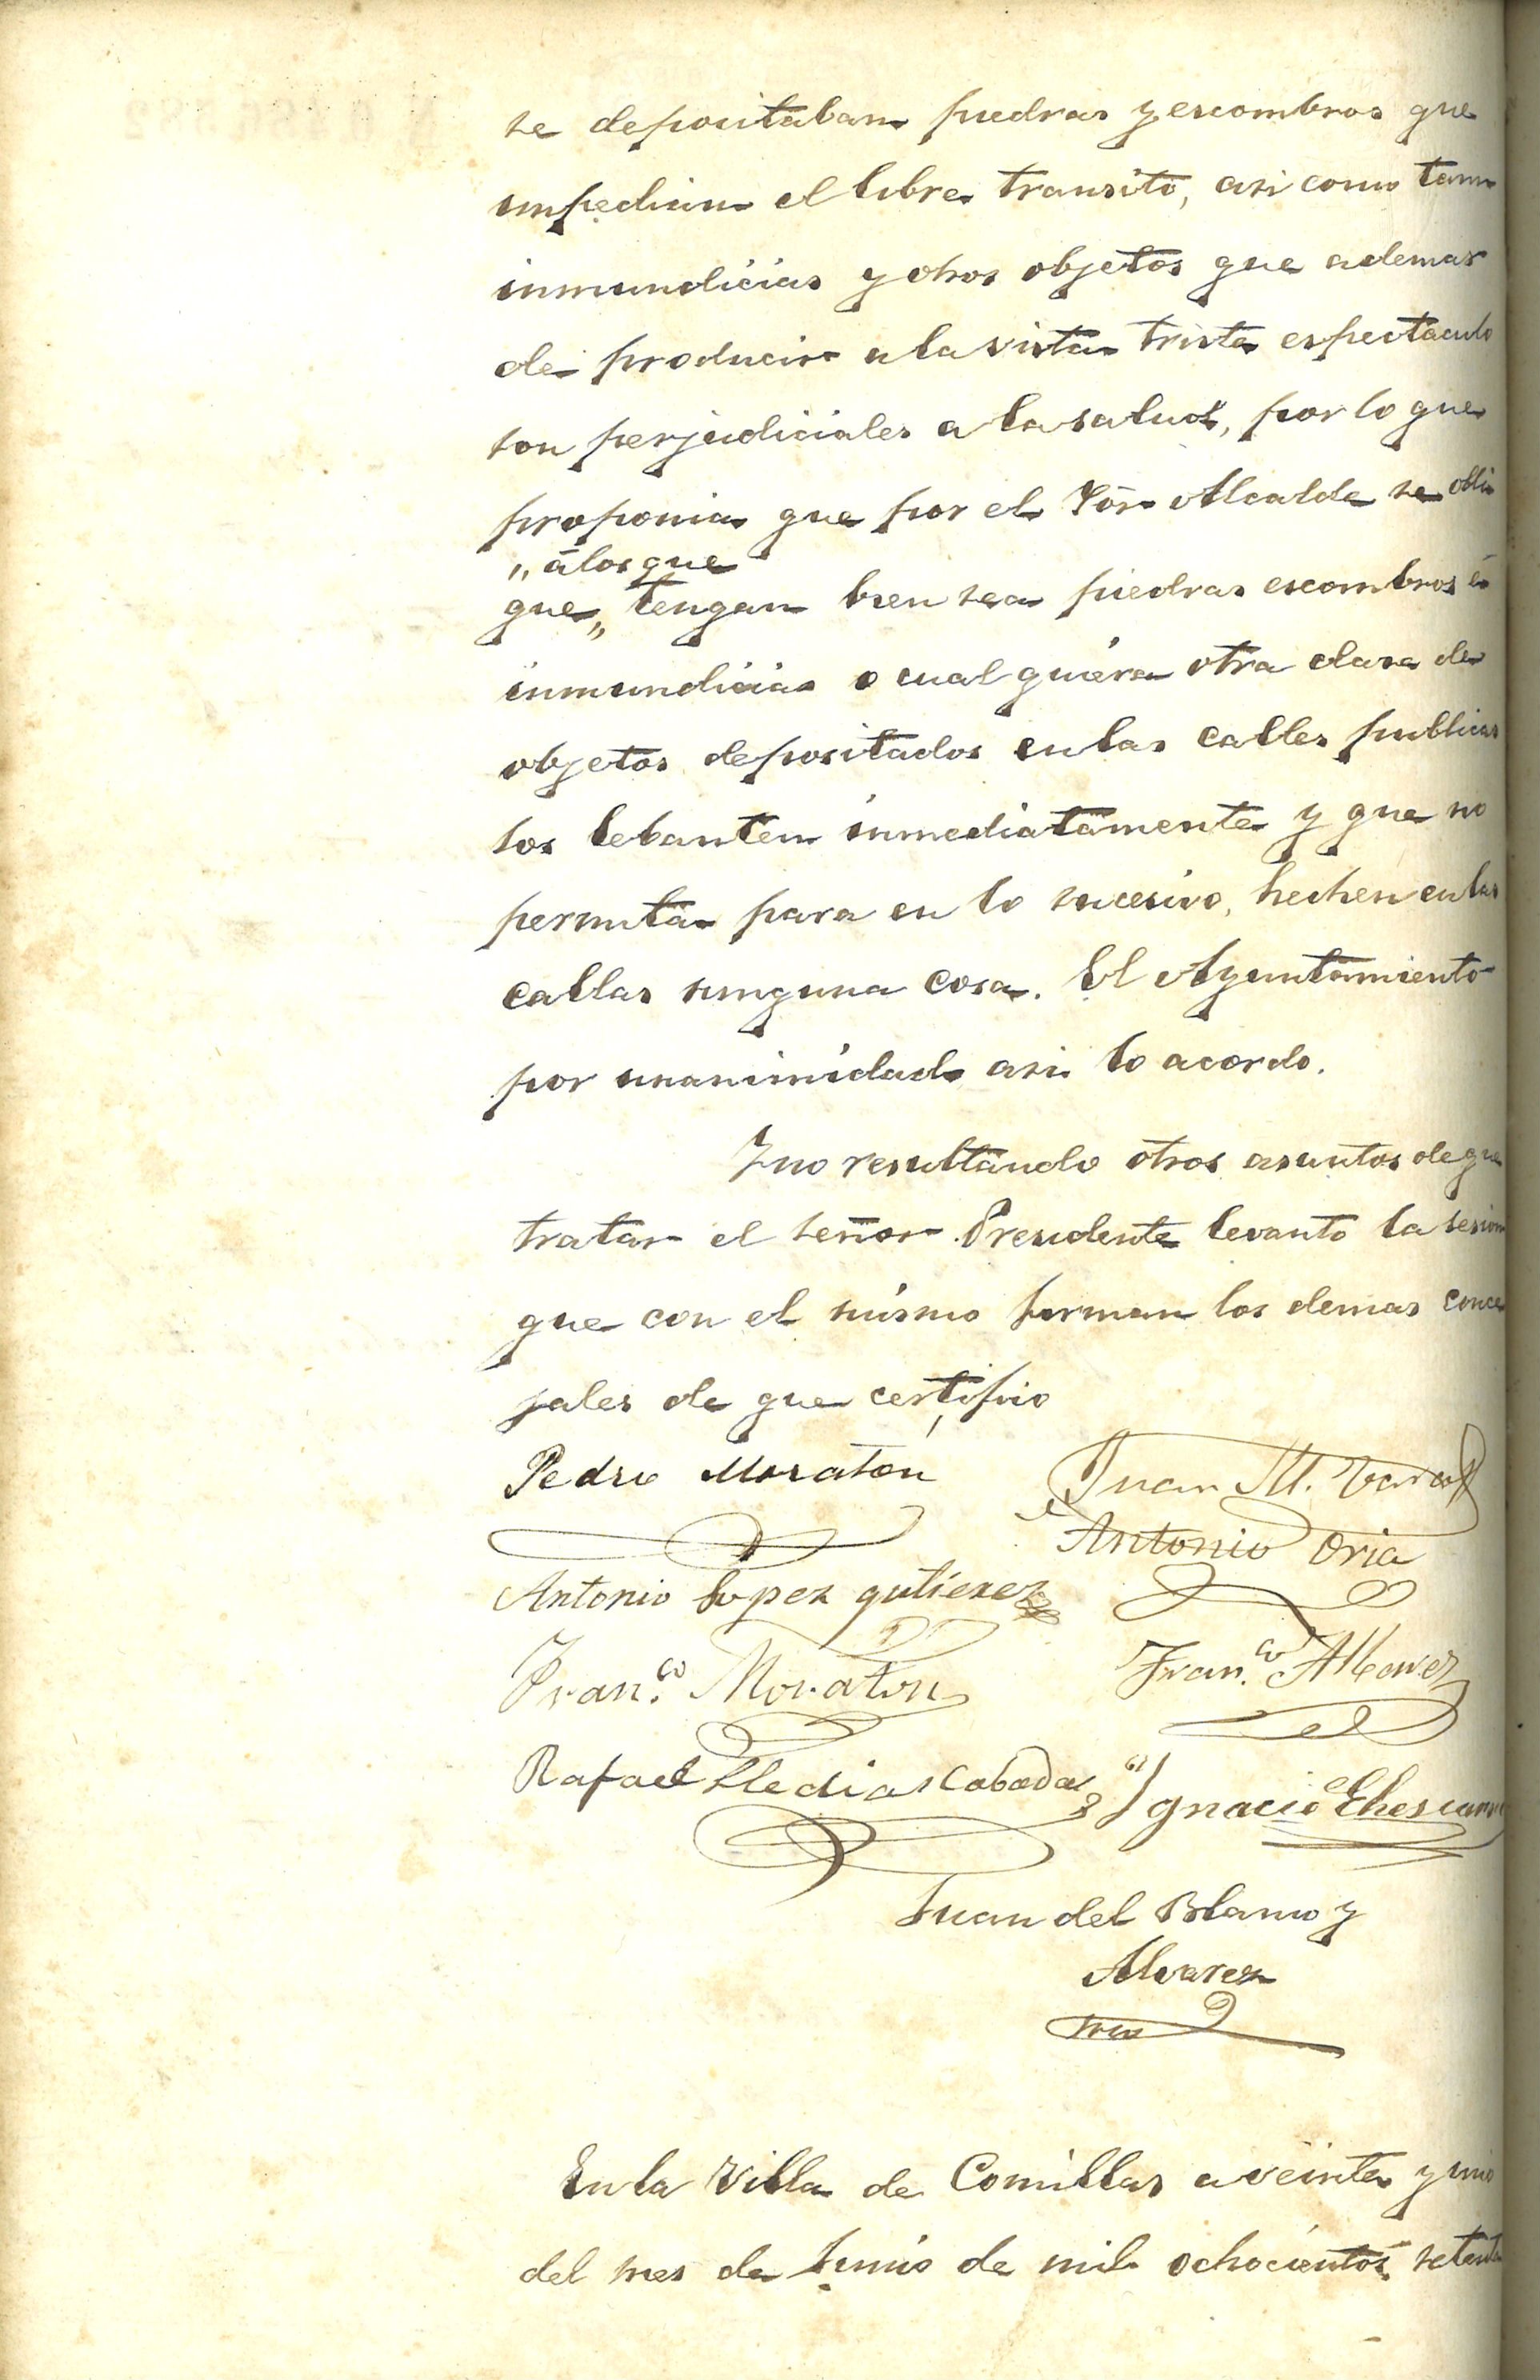 se depositaban piedras y escombros que
impedian el libre transito, asi como tam
inmundicias y otros objetos que ademas
de producir a la vista triste espectaculo
son perjudiciales a la salud, por lo que
proponia que por el Sõr Alcalde se obli
„ á los que
que „ tengan bien sea piedras escombros é
inmundicias o cualquiera otra clase de
objetos depositados en las calles publicas
los lebanten inmediatamente y que no
permita para en lo sucesivo, hechen en las
calles ninguna cosa. El Ayuntamiento
por unanimidad asi lo acordo.
Y no resultando otros asuntos de que
tratar el señor Presidente levanto la sesion
que con el mismo firman los demas conce
jales de que certifico
Pedro Moraton
Juan M.
Antonio Oria
Antonio Lopez gutierez
Fran.co Moraton
Fran.co
Rafael
Ignacio
Juan del Blanco y
Alvarez
En la Villa de Comillas a veinte y uno
del mes de Junio de mil ochocientos setenta